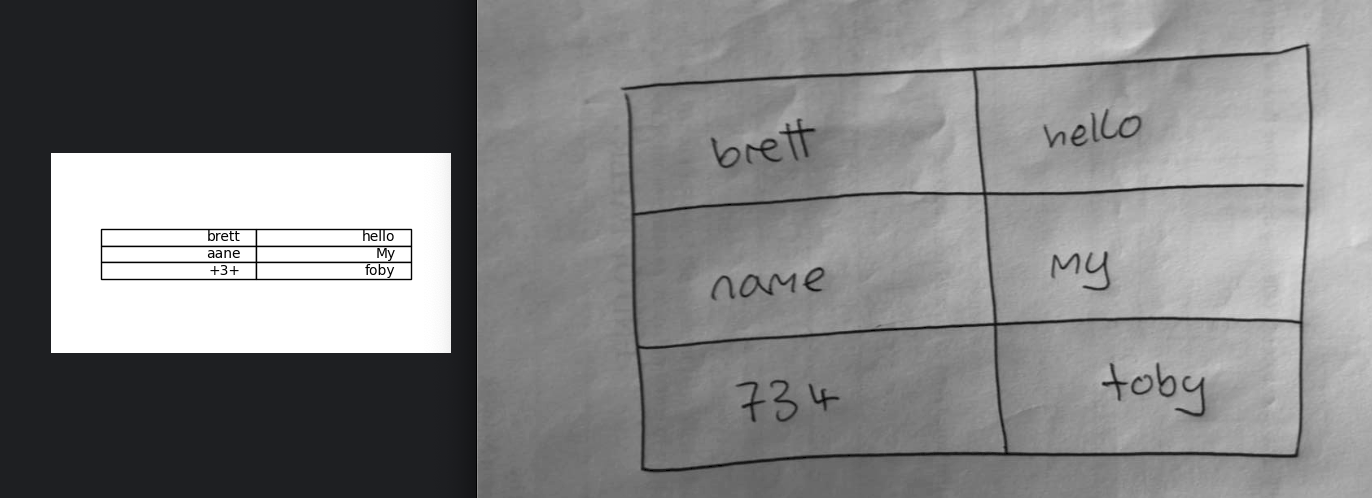 brett hello
aane My
+3+ foby
brett hello
name My
734 toby